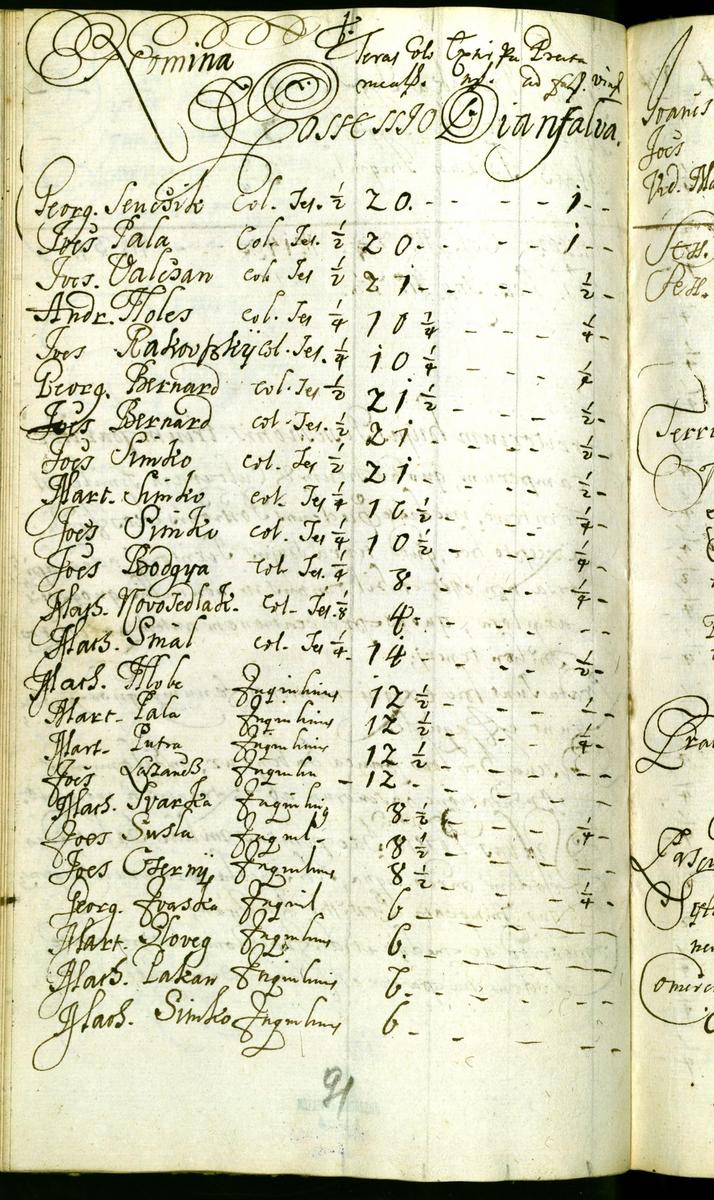 Nomina Terras Colo Exnis Pu Prata
meass. ad falc.
Possessio Dianfalva.
Georg. Sencsik Col. Ses. ½ 20. - - - - 1 - -
Joes Pala Col. Ses. ½ 20. - - - - 1 - -
Joes. Valcsan col. Ses ½ 21 - - - - ½ -
Andr. Holes col. Ses ¼ 10 ¼ - - - - ¼ -
Joes Rakovszkÿ col. Ses. ¼ 10 ¼ - - - - ¼
Georg. Bernard col. Ses ½ 21 ½ - - - - ½ -
Joes Bernard col. Ses. ½ 21 - - - - ½ -
Joes Simko col. Ses ½ 21 - - - - ½ -
Mart. Simko col. Ses ¼ 10 ½ - - - - ¼ -
Joes Simko col. Ses ¼ 10 ½ - - - - ¼
Joes Bodgya col. Ses. ¼ 8. - - - - ¼ -
Mach. Novosedlak. col. Ses. ⅛ 4. - - - - - -
Mach. Smal col. Ses ¼ 14 - - - - ½ -
Mach. Hobe Inquilinus 12 ½ - - - -
Mart. Pala Inquilinus 12 ½ - - - - ¼ -
Mart. Putra Inquilinus 12 ½ - - - -
Joes Inquilin - 12 - - - - -
Mach. Svarka Inquilinus 8 ½ - - - - ¼ -
Joes Susla Inquil. 8 ½ - - - -
Joes Csernÿ Inquilinus 8 ½ - - - - ¼ -
Georg. Ivaska Inquil 6 - - - -
Mart. Sloveg Inquilinus 6. - - - -
Mach. Lakav Inquilinus 6. - - - -
Mach. Simko Inquilinus 6 - - - -
91
Joanis
Joes
Vid. Ma
Terri
Pra